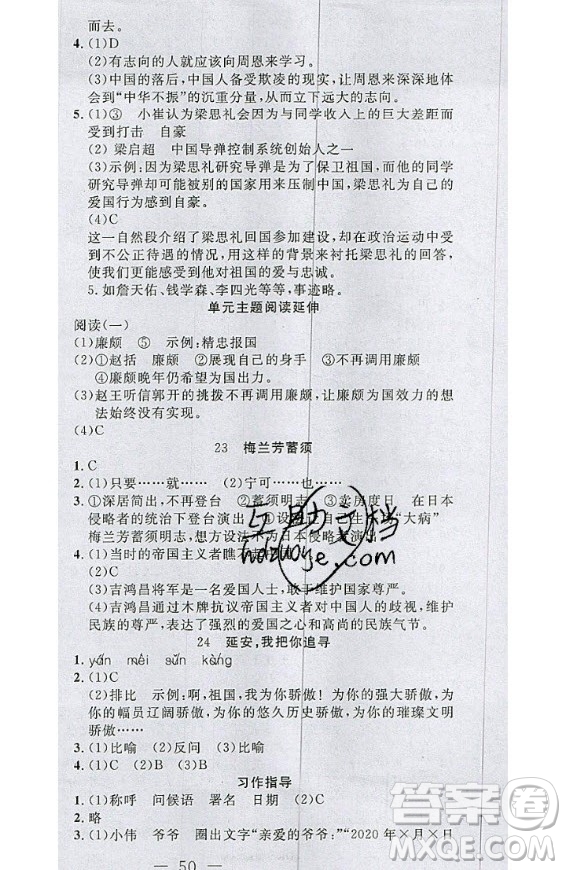 而去。
4. (1)D
(2)有志向的人就应该向周恩来学习。
(3)中国的落后,中国人备受欺凌的现实,让周恩来深深地体
会到“中华不振”的沉重分量,从而立下远大的志向。
5. (1)③ 小崔认为梁思礼会因为与同学收入上的巨大差距而
受到打击 自豪
(2) 梁启超 中国导弹控制系统创始人之一
(3)示例:因为梁思礼研究导弹是为了保卫祖国,而他的同学
研究导弹可能被别的国家用来压制中国,梁思礼为自己的
爱国行为感到自豪。
(4)C
这一自然段介绍了梁思礼回国参加建设,却在政治运动中受
到不公正待遇的情况,用这样的背景来衬托梁思礼的回答,
更能表达他对祖国的爱与忠诚。
5. 如詹天佑、钱学森、李四光等等,事迹略。
单元主题阅读延伸
阅读(一)
(1)廉颇 ⑤ 示例:精忠报国
(2)①赵括 廉颇 ②展现自己的身手 ③不再调用廉颇
④廉颇晚年仍希望为国出力
(3)赵王听信郭开的挑拨不再调用廉颇,廉颇为国效力的想
法始终没有实现。
(4)C
23 梅兰芳蓄须
1. C
2. (1)只要……就…… (2)宁可……也……
3. ①深居简出,不再登台 ②蓄须明志 ③卖房度日 在日本
侵略者的统治下登台演出 ④设法让自己生了一场“大病”
梅兰芳蓄须明志,想方设法不为日本侵略者演出
4. (1)当时的帝国主义者瞧不起中国人
(2)C
(3)吉鸿昌将军是一名爱国人士,敢于维护国家尊严。
(4)吉鸿昌通过木牌抗议帝国主义者对中国人的歧视,维护
民族的尊严,表达了强烈的爱国之心和高尚的民族气节。
24 延安,我把你追寻
1. yán mèi sǔn kàng
2. (1)C
(2)排比 示例:啊,祖国,我为你骄傲!为你的强大骄傲,为
你的幅员辽阔骄傲,为你的悠久历史骄傲,为你的璀璨文明
骄傲……
3. (1)比喻 (2)反问 (3)比喻
4. (1)C (2)B (3)B
习作指导
1. (1)称呼 问候语 署名 日期 (2)C
2. 略
3. (1)小伟 爷爷 圈出文字“亲爱的爷爷:”“2020年×月×日
— 50 —
互助文档
hozuoye.com
答案圈
MXQE.COM